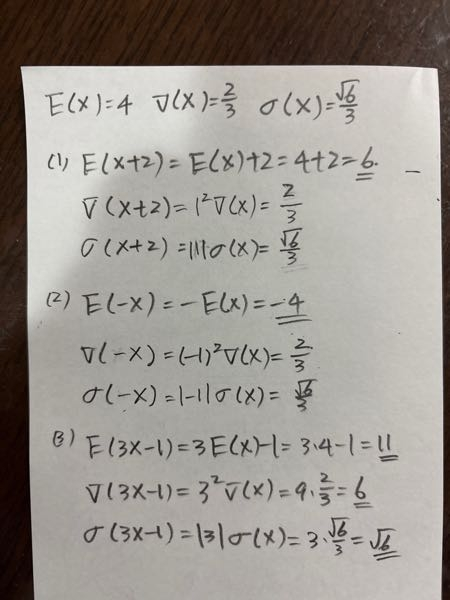 E(X)=4 V(X)=2/3 σ(X)=√6/3
(1) E(X+2)=E(X)+2=4+2=6.
V(X+2)=1²V(X)=2/3
σ(X+2)=|1|σ(X)=√6/3
(2) E(-X)=-E(X)=-4
V(-X)=(-1)²V(X)=2/3
σ(-X)=|-1|σ(X)=√6/3
(3) E(3X-1)=3E(X)-1=3·4-1=11
V(3X-1)=3²V(X)=9·2/3=6
σ(3X-1)=|3|σ(X)=3·√6/3=√6